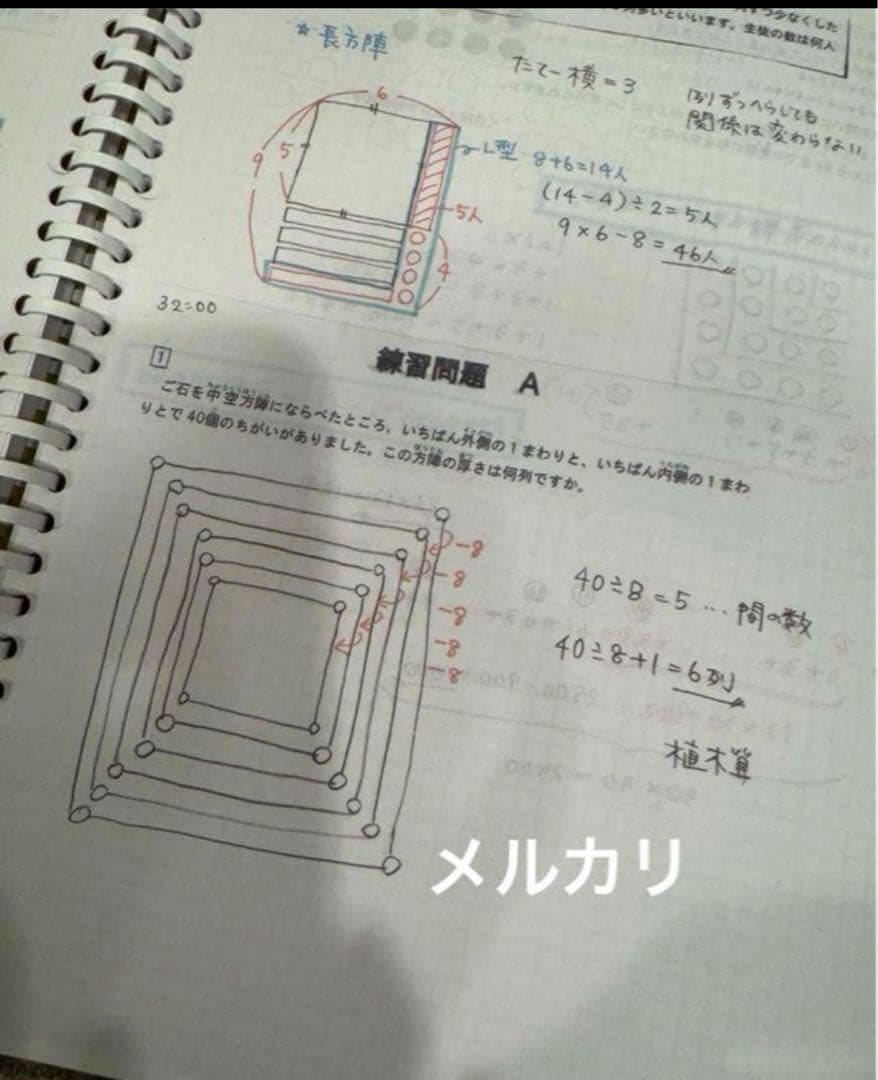 ずつ少なくした
多いといいます。生徒の数は何人
☆長方陣
たて-横=3
1列ずつへらしても
関係は変わらない
6
9
5
L型
8+6=14人
(14-4)÷2=5人
5人
9×6-8=46人
4
32=00
練習問題 A
1
ご石を中空方陣にならべたところ、いちばん外側の1まわりと、いちばん内側の1まわ
りとで40個のちがいがありました。この方陣の厚さは何列ですか。
-8
-8
-8
-8
-8
40÷8=5…間の数
40÷8+1=6列
植木算
メルカリ